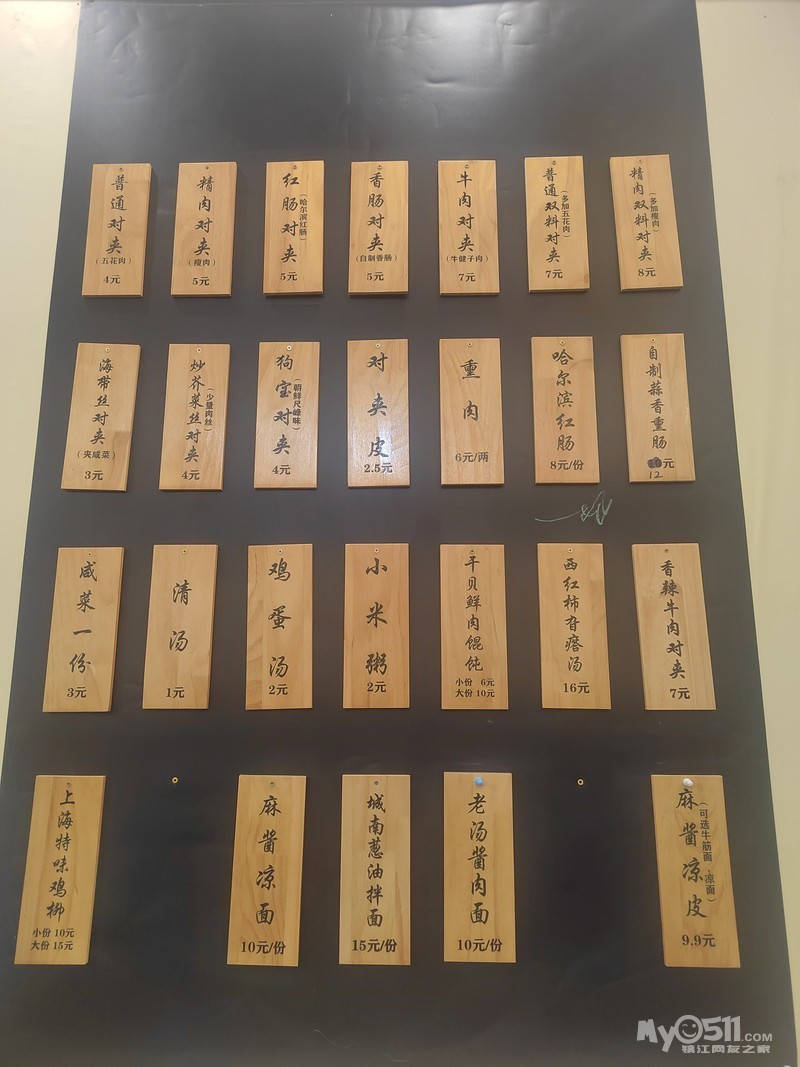 普通对夹
（五花肉）
4元
精肉对夹
（瘦肉）
5元
红肠对夹
（哈尔滨红肠）
5元
香肠对夹
（自制香肠）
5元
牛肉对夹
（牛健子肉）
7元
普通双料对夹
（多加五花肉）
7元
精肉双料对夹
（多加瘦肉）
8元
海带丝对夹
（夹咸菜）
3元
炒芥菜丝对夹
（少量肉丝）
4元
狗宝对夹
（朝鲜尺峰味）
4元
对夹皮
2.5元
熏肉
6元/两
哈尔滨红肠
8元/份
自制蒜香熏肠
元
12
咸菜一份
3元
清汤
1元
鸡蛋汤
2元
小米粥
2元
干贝鲜肉馄饨
小份 6元
大份 10元
西红柿旮瘩汤
16元
香辣牛肉对夹
7元
上海特味鸡柳
小份 10元
大份 15元
麻酱凉面
10元/份
城南葱油拌面
15元/份
老汤酱肉面
10元/份
麻酱凉皮
（可选牛筋面、凉面）
9.9元
My0511.COM
镇江网友之家